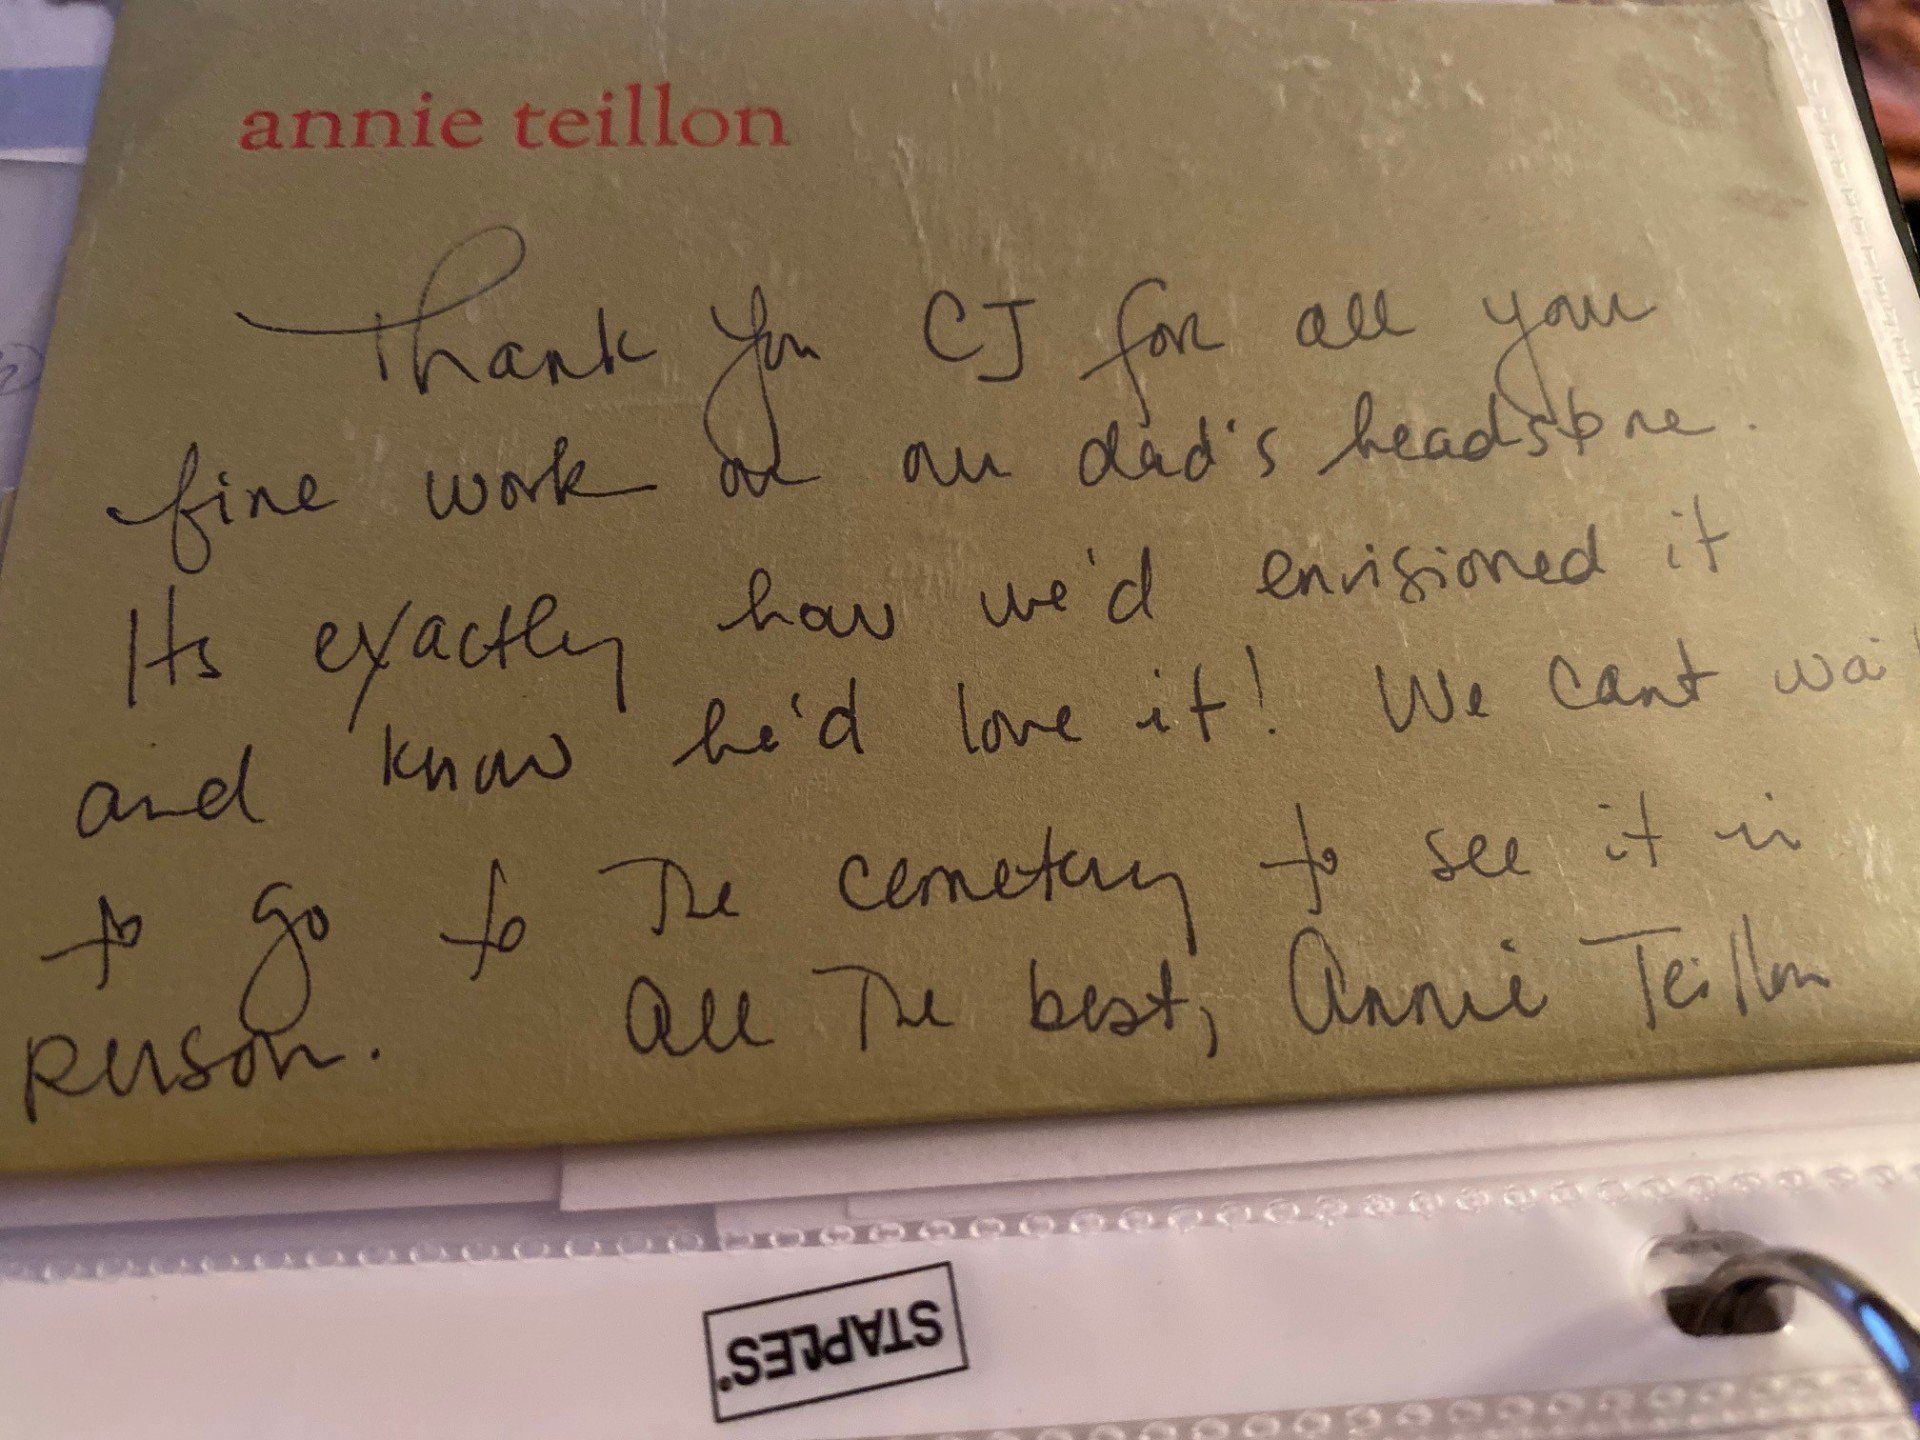 annie teillon
Thank you CJ for all your
fine work on our dad's headstone.
Its exactly how we'd envisioned it
and know he'd love it! We cant wai
to go to The cemetery to see it in
person. All The best, Annie Teillon
STAPLES